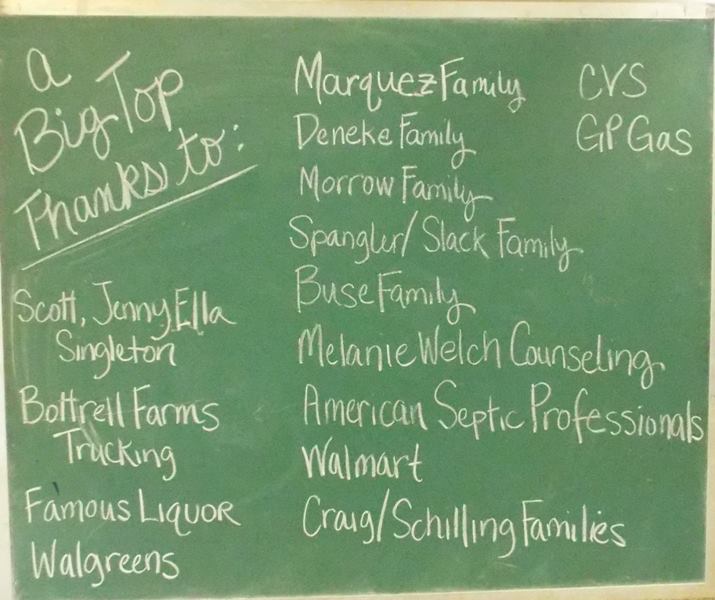 a
Big Top
Thanks to:
Scott, Jenny, Ella
Singleton
Bottrell Farms
Trucking
Famous Liquor
Walgreens
Marquez Family
Deneke Family
Morrow Family
Spangler/Slack Family
Buse Family
Melanie Welch Counseling
American Septic Professionals
Walmart
Craig/Schilling Families
CVS
GP Gas